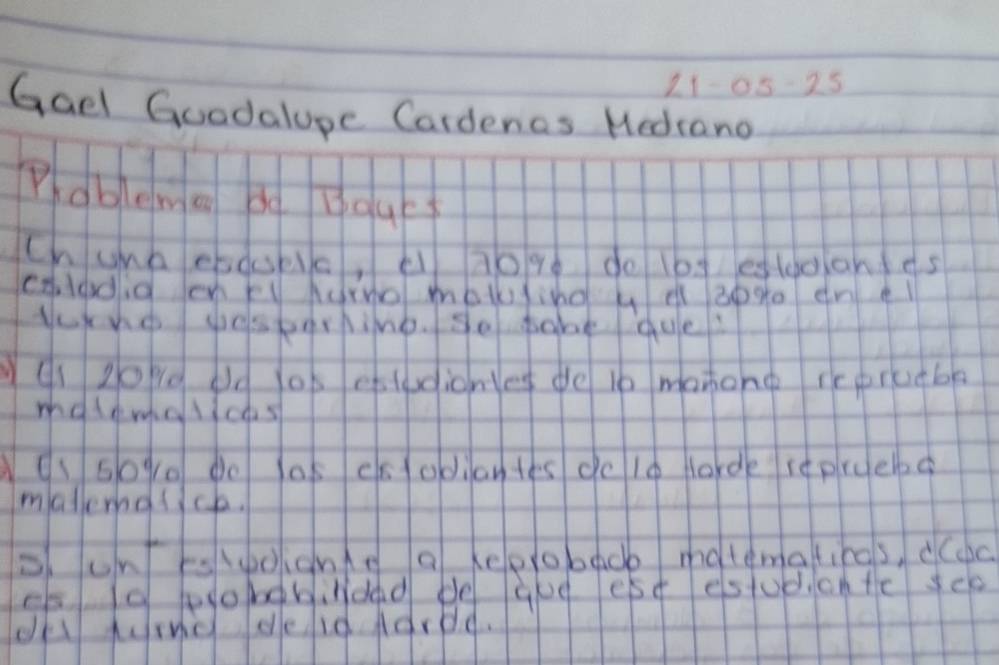 21-05-25
Gael Guadalupe Cardenas Medrano
Problema de Bayes
En una escuela, el 70% de los estudiantes
estudia en el turno matutino y el 30% en el
turno vespertino. Se sabe que:
El 20% de los estudiantes de la mañana reprueba
matematicas
El 50% de los estudiantes de la tarde reprueba
matematica.
Si un estudiante a reprobado matematicas, ¿Cuál
es la probabilidad de que ese estudiante sea
del turno de la tarde.